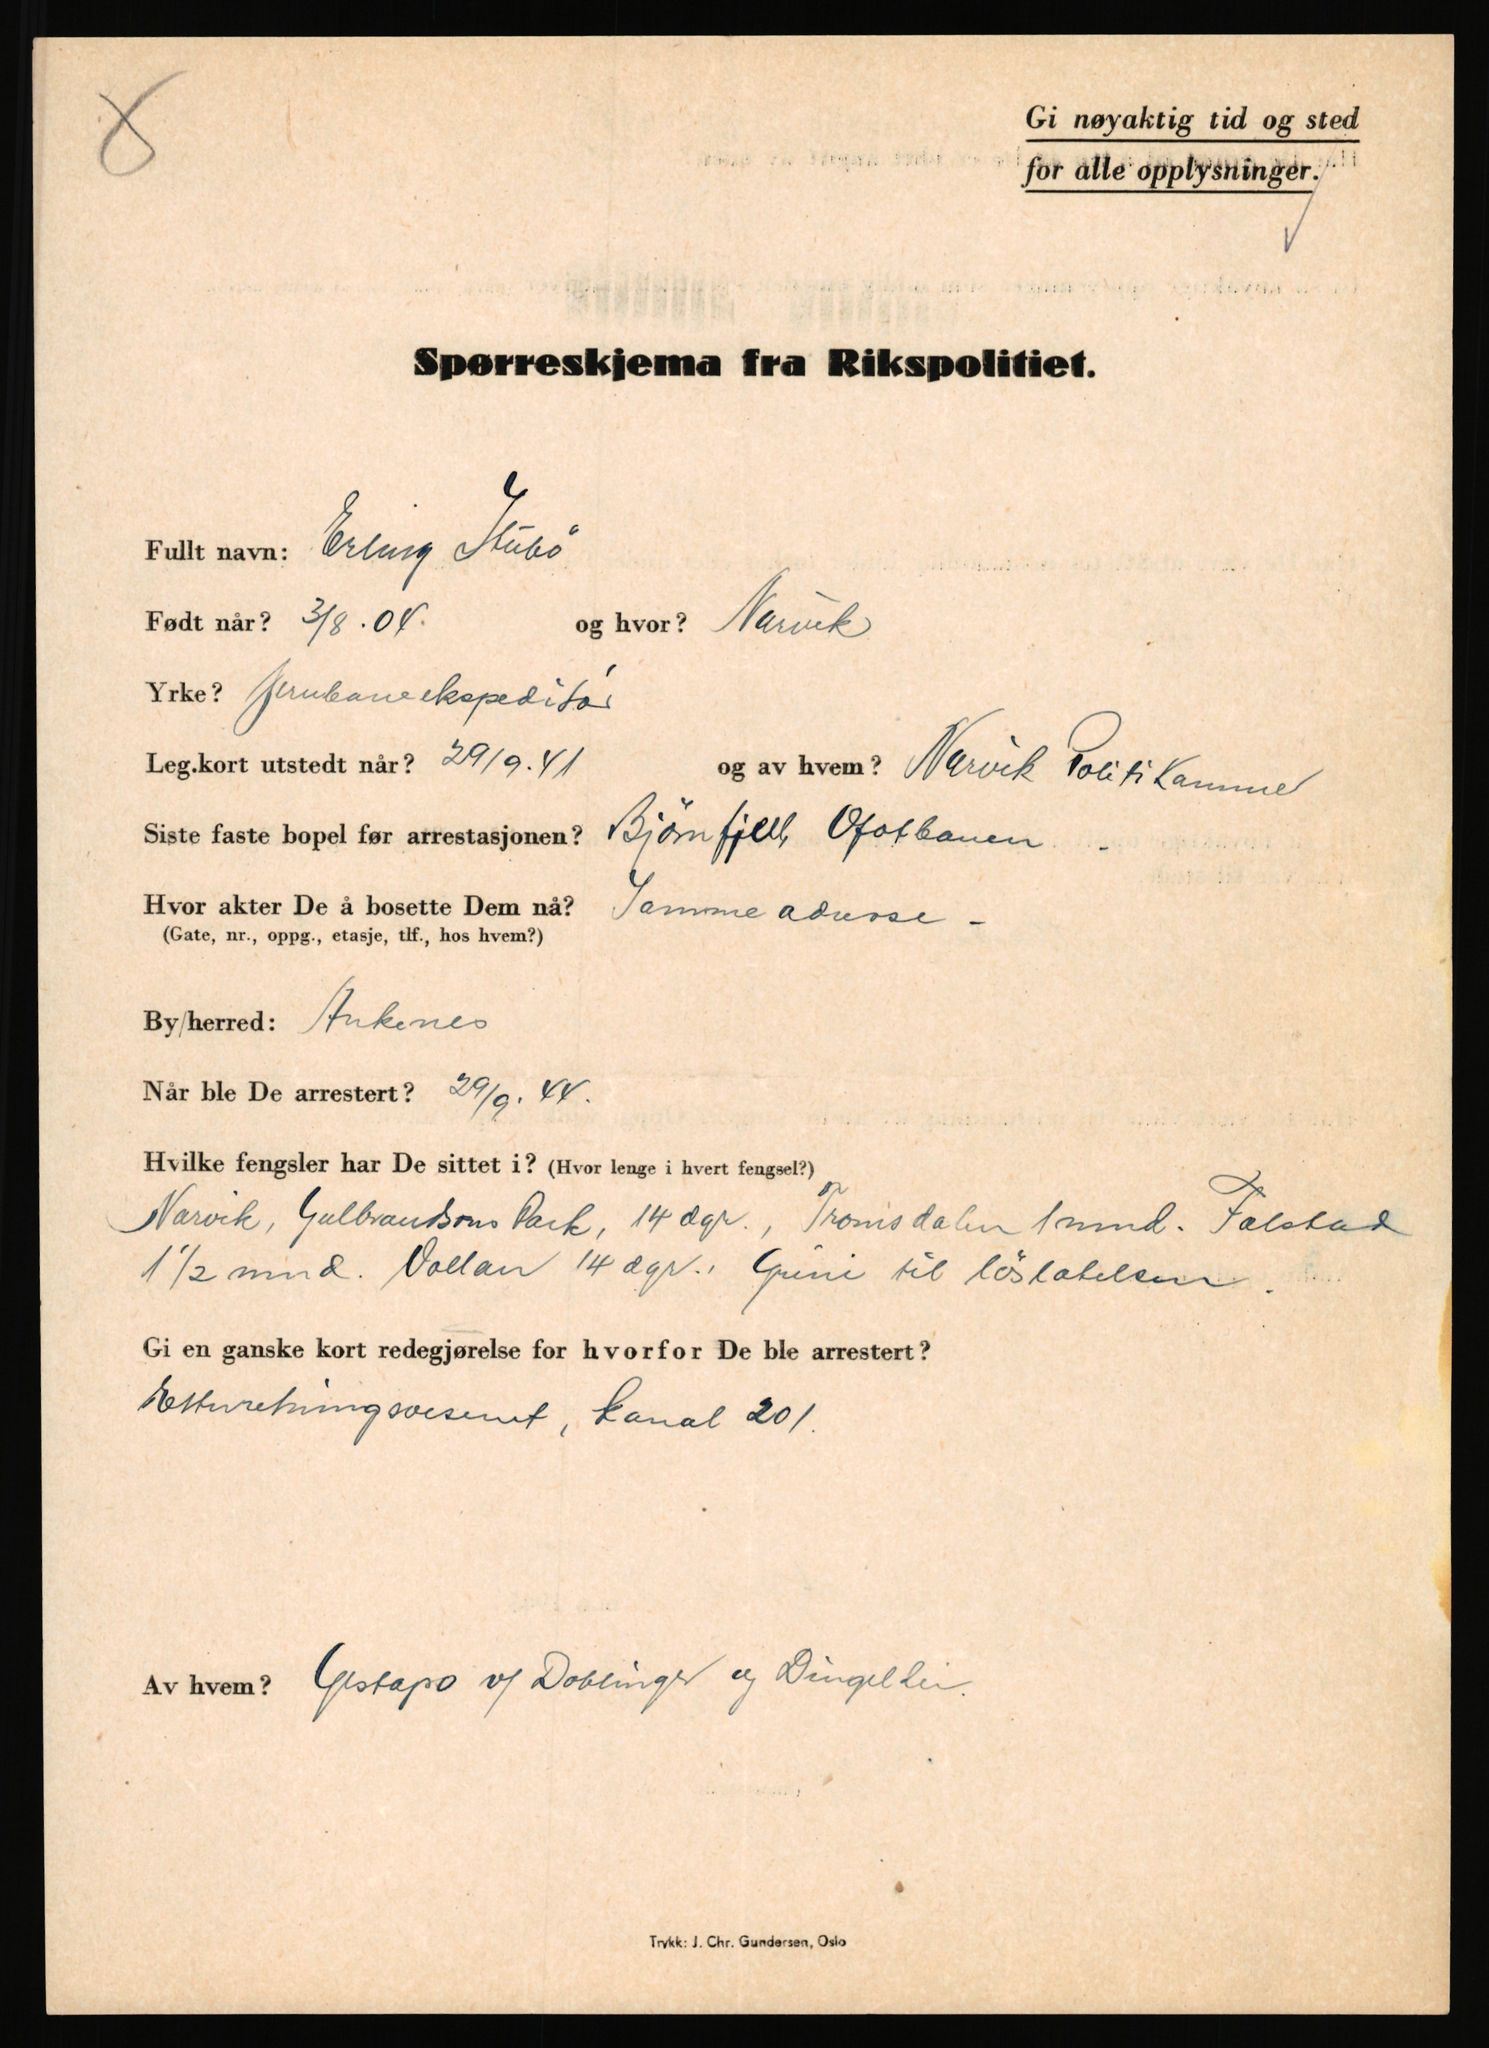 8
Gi nøyaktig tid og sted
for alle opplysninger.
Spørreskjema fra Rikspolitiet.
Fullt navn: Erling Stubö
Født når? 3/8.04. og hvor? Narvik
Yrke? Jernbaneekspeditør
Leg.kort utstedt når? 29/9.41 og av hvem? Narvik Politikammer
Siste faste bopel før arrestasjonen? Bjömfjell, Ofotbanen
Hvor akter De å bosette Dem nå? Samme adresse -
(Gate, nr., oppg., etasje, tlf., hos hvem?)
By/herred: Ankenes
Når ble De arrestert? 29/9.44.
Hvilke fengsler har De sittet i? (Hvor lenge i hvert fengsel?)
Narvik, Gulbrandsons Park, 14 dgr., Tromsdalen 1 mnd. Falstad
1 1/2 mnd. Vollan 14 dgr., Grini til löslatelsen.
Gi en ganske kort redegjørelse for hvorfor De ble arrestert?
Etterretningsvesenet, kanal 201.
Av hvem? Gestapo v/ Doblinger og
Trykk: J. Chr. Gundersen, Oslo